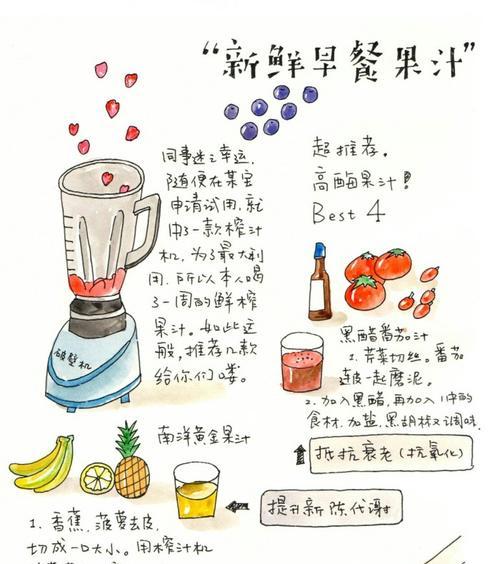 “新鲜早餐果汁”
同事迷之幸运,
随便在某宝
申请试用,就
中了一款榨汁
机,为了最大利
用,所以本人喝
了一周的鲜榨
果汁。如此这
般,推荐几款
给你们喽。
超推荐。
高酶果汁!
Best 4
破壁机
黑醋番茄汁
1. 芹菜切丝。番茄
连皮一起磨泥。
2. 加入黑醋,再加入1中的
食材.加盐.黑胡椒又调味.
抵抗衰老(抗氧化)
南洋黄金果汁
提升新陈代谢
1. 香蕉,菠萝去皮,
切成一口大小。用榨汁机